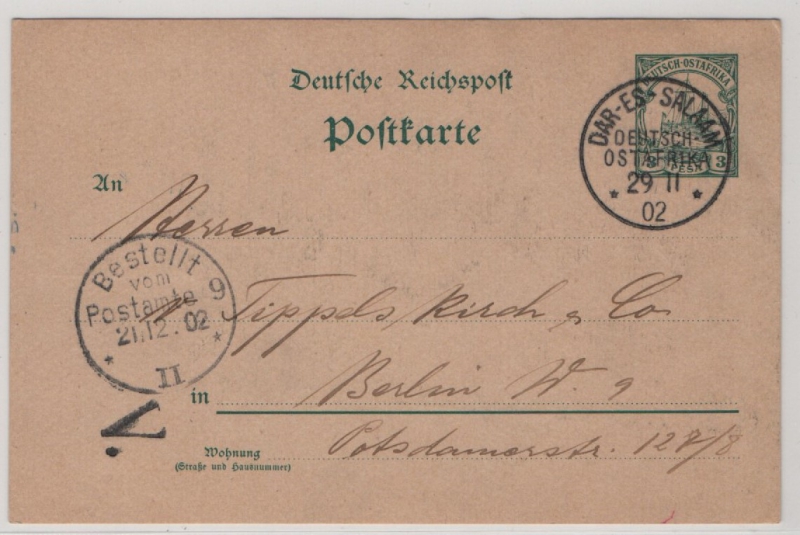 Deutsche Reichspost
Postkarte
DEUTSCH-OSTAFRIKA
3 PESA 3
DAR-ES-SALAAM
DEUTSCH-
OSTAFRIKA
29 11
02
An
Herren
v Tippelskirch & Co
in Berlin W. 9
Potsdamerstr. 127/8
Wohnung
(Straße und Hausnummer)
Bestellt
vom
Postamte 9
21.12.02
II